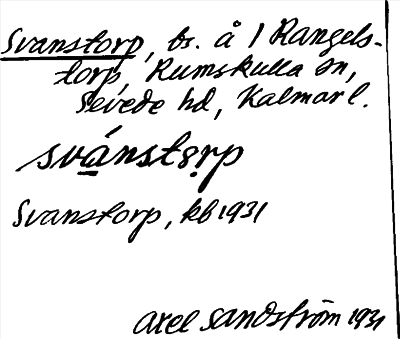 Svanstorp, ts. å 1 Rangels-
torp, Rumskulla sn,
Sevede hd, Kalmar l.
svánstorp
Svanstorp, kb 1931
Axel Sandström 1931